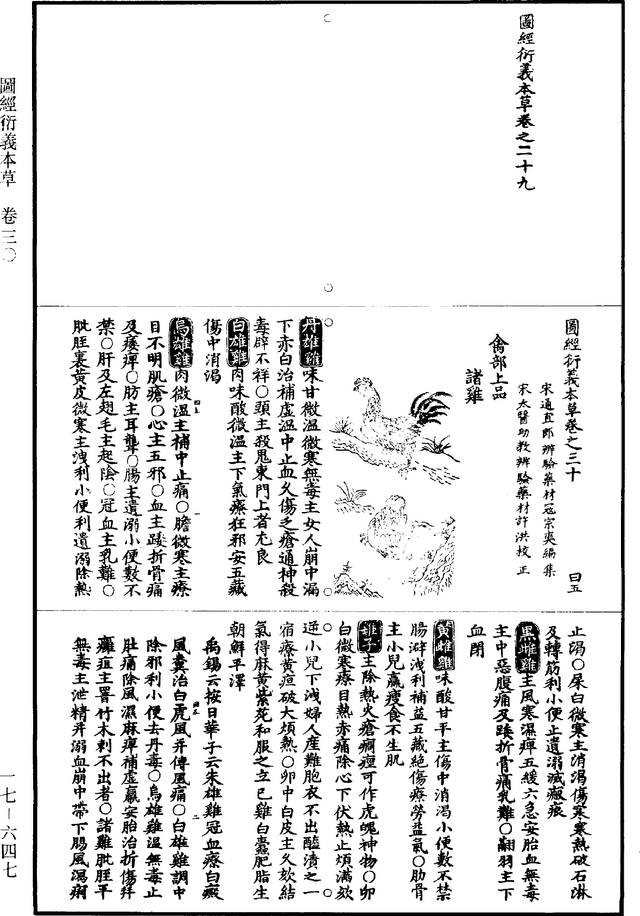 圖經衍義本草 卷三〇
一七—六四七
圖經衍義本草卷之二十九
圖經衍義本草卷之三十 曰五
宋通直郎辨驗藥材寇宗奭編集
宋太醫助教辨驗藥材許洪校正
禽部上品
諸雞
丹雄雞味甘微溫微寒無毒主女人崩中漏
下赤白沃補虛溫中止血久傷乏瘡通神殺
毒辟不祥○頭主殺鬼東門上者尤良
白雄雞肉味酸微溫主下氣療狂邪安五藏
傷中消渴
烏雄雞肉微溫主補中止痛○膽微寒主療
目不明肌瘡○心主五邪○血主踒折骨痛
及痿痺○肪主耳聾○腸主遺溺小便數不
禁○肝及左翅毛主起陰○冠血主乳難○
肶胵裏黃皮微寒主洩利小便利遺溺除熱
止渴○屎白微寒主消渴傷寒寒熱破石淋
及轉筋利小便止遺溺滅瘢痕
黑雌雞主風寒濕痺五緩六急安胎血無毒
主中惡腹痛及踒折骨痛乳難○翮羽主下
血閉
黃雌雞味酸甘平主傷中消渴小便數不禁
腸澼洩利補益五藏絕傷療勞益氣○肋骨
主小兒羸瘦食不生肌
雞子主除熱火瘡癇痙可作虎魄神物○卵
白微寒療目熱赤痛除心下伏熱止煩滿欬
逆小兒下洩婦人產難胞衣不出醯漬之一
宿療黃疸破大煩熱○卵中白皮主久欬結
氣得麻黃紫菀和服之立已雞白蠹肥脂生
朝鮮平澤
禹錫云按日華子云朱雄雞冠血療白癜
風糞治白虎風并傅風痛○白雄雞調中
除邪利小便去丹毒○烏雄雞溫無毒止
肚痛除風濕麻痺補虛羸安胎治折傷并
癰疽主罯竹木刺不出者○諸雞肶胵平
無毒主泄精并溺血崩中帶下腸風瀉痢